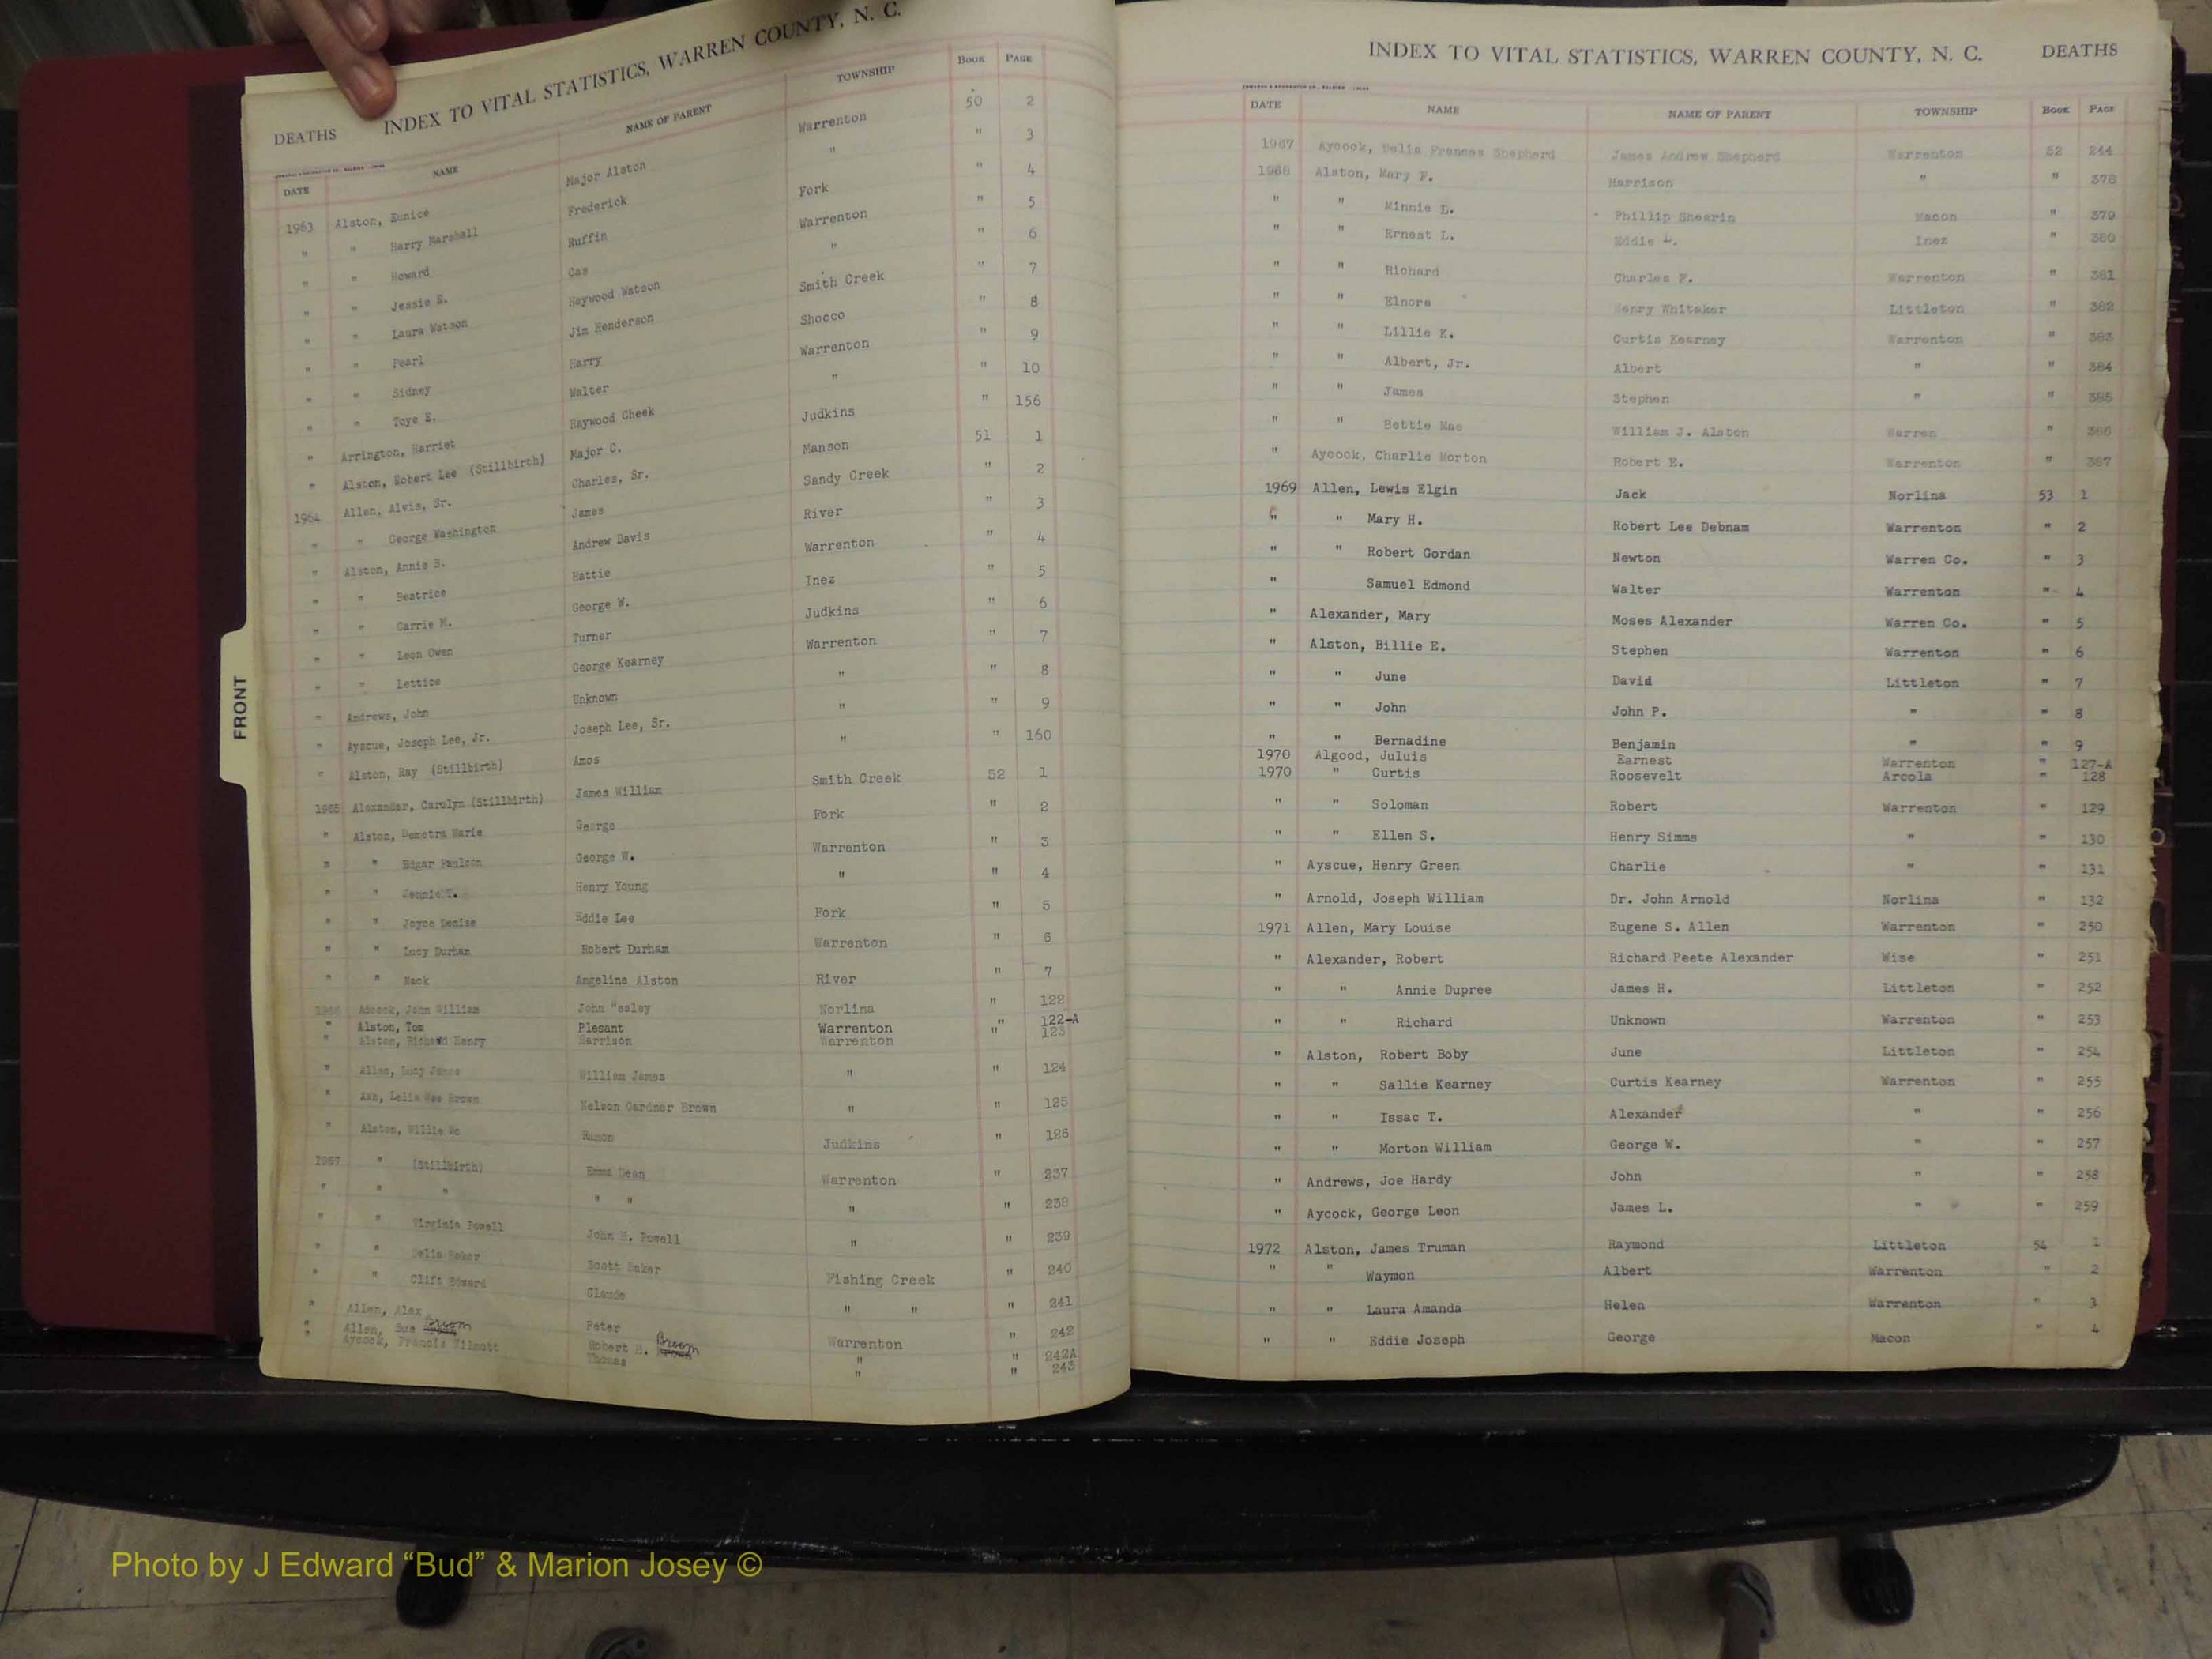 DEATHS INDEX TO VITAL STATISTICS, WARREN COUNTY, N. C.
DATE NAME NAME OF PARENT TOWNSHIP BOOK PAGE
1963 Alston, Eunice Major Alston Warrenton 50 2
" " Harry Marshall Frederick " " 3
" " Howard Ruffin Fork " 4
" " Jessie E. Cas Warrenton " 5
" " Laura Watson Haywood Watson " " 6
" " Pearl Jim Henderson Smith Creek " 7
" " Sidney Harry Shocco " 8
" " Toye E. Walter Warrenton " 9
" Arrington, Harriet Haywood Cheek " " 10
" Alston, Robert Lee (Stillbirth) Major C. Judkins " 156
1964 Allen, Alvis, Sr. Charles, Sr. Manson 51 1
" " George Washington James Sandy Creek " 2
" Alston, Annie B. Andrew Davis River " 3
" " Beatrice Hattie Warrenton " 4
" " Carrie M. George W. Inez " 5
" " Leon Owen Turner Judkins " 6
" " Lettice George Kearney Warrenton " 7
" Andrews, John Unknown " " 8
" Ayscue, Joseph Lee, Jr. Joseph Lee, Sr. " " 9
" Alston, Ray (Stillbirth) Amos " " 160
1965 Alexander, Carolyn (Stillbirth) James William Smith Creek 52 1
" Alston, Demetra Marie George Fork " 2
" " Edgar Paulson George W. Warrenton " 3
" " Jennie T. Henry Young " " 4
" " Joyce Denise Eddie Lee Fork " 5
" " Lucy Durham Robert Durham Warrenton " 6
" " Mack Angeline Alston River " 7
1966 Adcock, John William John "esley Norlina " 122
" Alston, Tom Plesant Warrenton " 122-A
" Alston, Richard Henry Harrison Warrenton " 123
" Allen, Lucy James William James " " 124
" Ash, Lelia Mae Brown Nelson Gardner Brown " " 125
" Alston, Willie Mc Judkins " 126
1967 " (Stillbirth) Emma Dean Warrenton " 237
" " " " " " " 238
" " Virginia Powell John H. Powell " " 239
" " Delia Baker Scott Baker Fishing Creek " 240
" " Clift Edward Claude " " " 241
" Allen, Alex Peter Warrenton " 242
" Allen, Sue Broom Robert H. Broom " " 242A
" Aycock, Francis Wilmott Thomas " " 243
FRONT
INDEX TO VITAL STATISTICS, WARREN COUNTY, N. C. DEATHS
DATE NAME NAME OF PARENT TOWNSHIP BOOK PAGE
1967 Aycock, Delia Frances Shepherd James Andrew Shepherd Warrenton 52 244
1968 Alston, Mary F. Harrison " " 378
" " Minnie L. Phillip Shearin Macon " 379
" " Ernest L. Eddie L. Inez " 380
" " Richard Charles F. Warrenton " 381
" " Elnora Henry Whitaker Littleton " 382
" " Lillie K. Curtis Kearney Warrenton " 383
" " Albert, Jr. Albert " " 384
" " James Stephen " " 385
" " Bettie Mae William J. Alston Warren " 386
" Aycock, Charlie Morton Robert E. Warrenton " 387
1969 Allen, Lewis Elgin Jack Norlina 53 1
" " Mary H. Robert Lee Debnam Warrenton " 2
" " Robert Gordan Newton Warren Co. " 3
" Samuel Edmond Walter Warrenton " 4
" Alexander, Mary Moses Alexander Warren Co. " 5
" Alston, Billie E. Stephen Warrenton " 6
" " June David Littleton " 7
" " John John P. " " 8
" " Bernadine Benjamin " " 9
1970 Algood, Juluis Earnest Warrenton " 127-A
1970 " Curtis Roosevelt Arcola " 128
" " Soloman Robert Warrenton " 129
" " Ellen S. Henry Simms " " 130
" Ayscue, Henry Green Charlie " " 131
" Arnold, Joseph William Dr. John Arnold Norlina " 132
1971 Allen, Mary Louise Eugene S. Allen Warrenton " 250
" Alexander, Robert Richard Peete Alexander Wise " 251
" " Annie Dupree James H. Littleton " 252
" " Richard Unknown Warrenton " 253
" Alston, Robert Boby June Littleton " 254
" " Sallie Kearney Curtis Kearney Warrenton " 255
" " Issac T. Alexander " " 256
" " Morton William George W. " " 257
" Andrews, Joe Hardy John " " 258
" Aycock, George Leon James L. " " 259
1972 Alston, James Truman Raymond Littleton 54 1
" " Waymon Albert Warrenton " 2
" " Laura Amanda Helen Warrenton " 3
" " Eddie Joseph George Macon " 4
Photo by J Edward “Bud” & Marion Josey ©